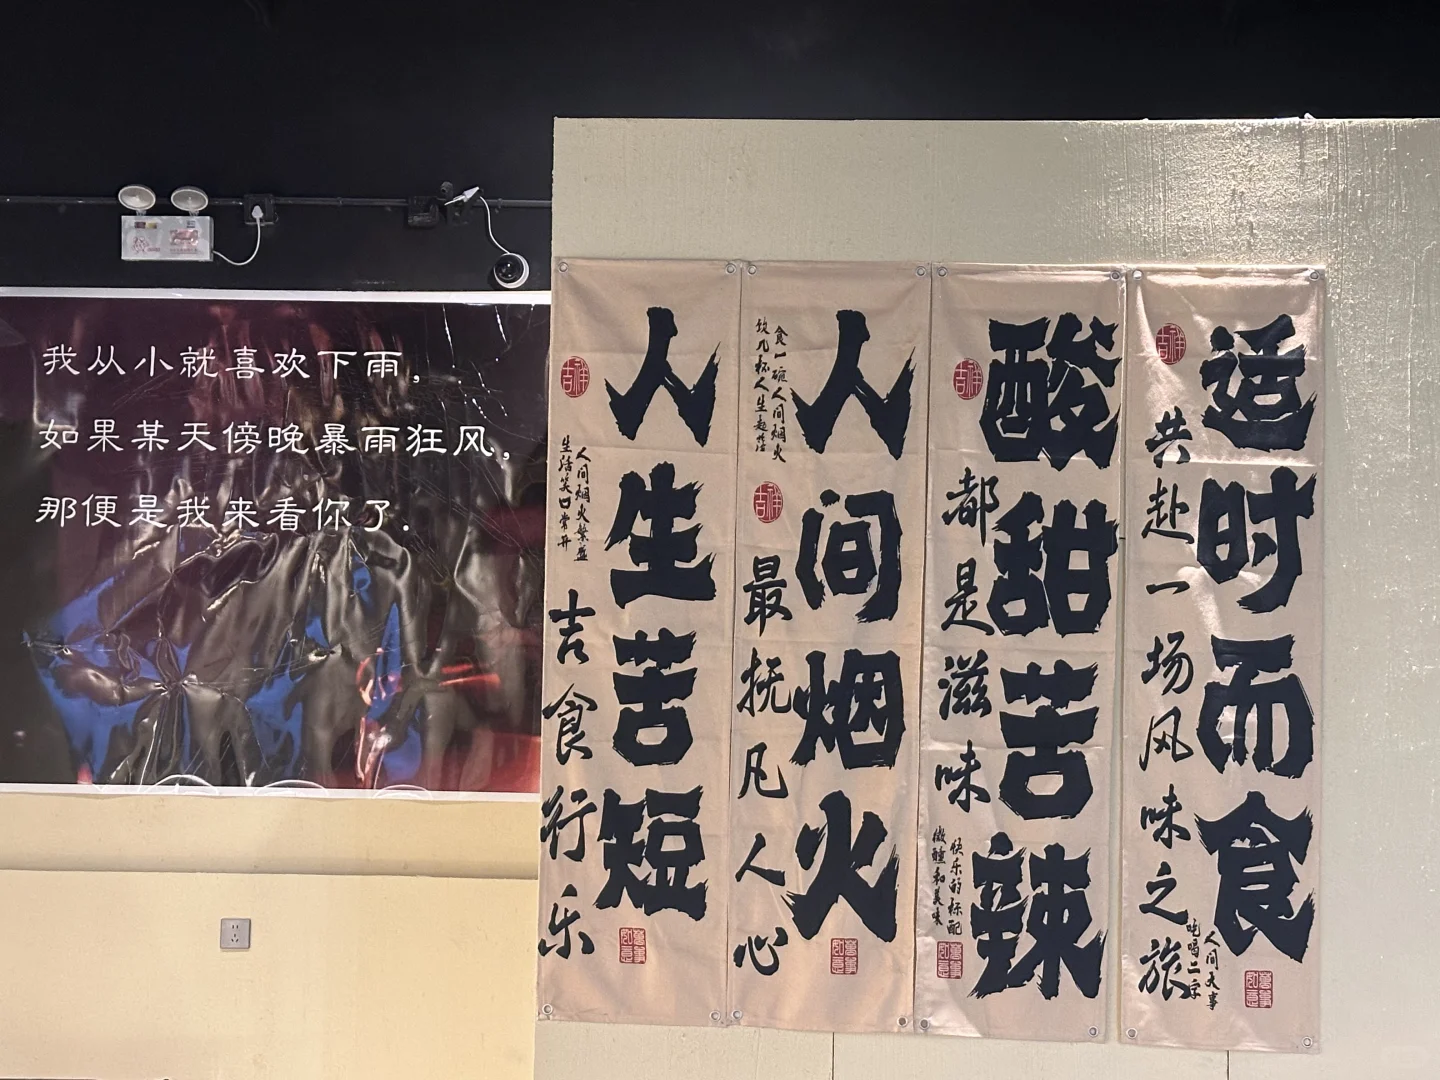 我从小就喜欢下雨，
如果某天傍晚暴雨狂风，
那便是我来看你了.
人生苦短
吉祥
人间烟火繁盛
生活笑口常开
吉食行乐
万事如意
人间烟火
食一碗人间烟火
饮几杯人生起落
吉祥
最抚凡人心
万事如意
酸甜苦辣
吉祥
都是滋味
快乐的标配
微醺和美味
万事如意
适时而食
吉祥
共赴一场风味之旅
人间大事
吃喝二字
万事如意